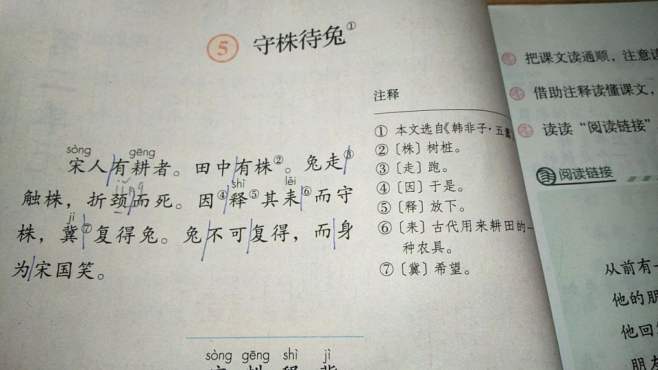 5 守株待兔①
sòng gēng
宋人有耕者。田中有株②。兔走③
触株，折颈而死。因④释⑤其耒⑥而守
jǐng shì lěi
株，冀⑦复得兔。兔不可复得，而身
jì
为宋国笑。
sòng gēng shì jì
注释
① 本文选自《韩非子·五
② 〔株〕树桩。
③ 〔走〕跑。
④ 〔因〕于是。
⑤ 〔释〕放下。
⑥ 〔耒〕古代用来耕田的一
种农具。
⑦ 〔冀〕希望。
把课文读通顺，注意
借助注释读懂课文，
读读“阅读链接”
阅读链接
从前有
他的朋
他回
朋友